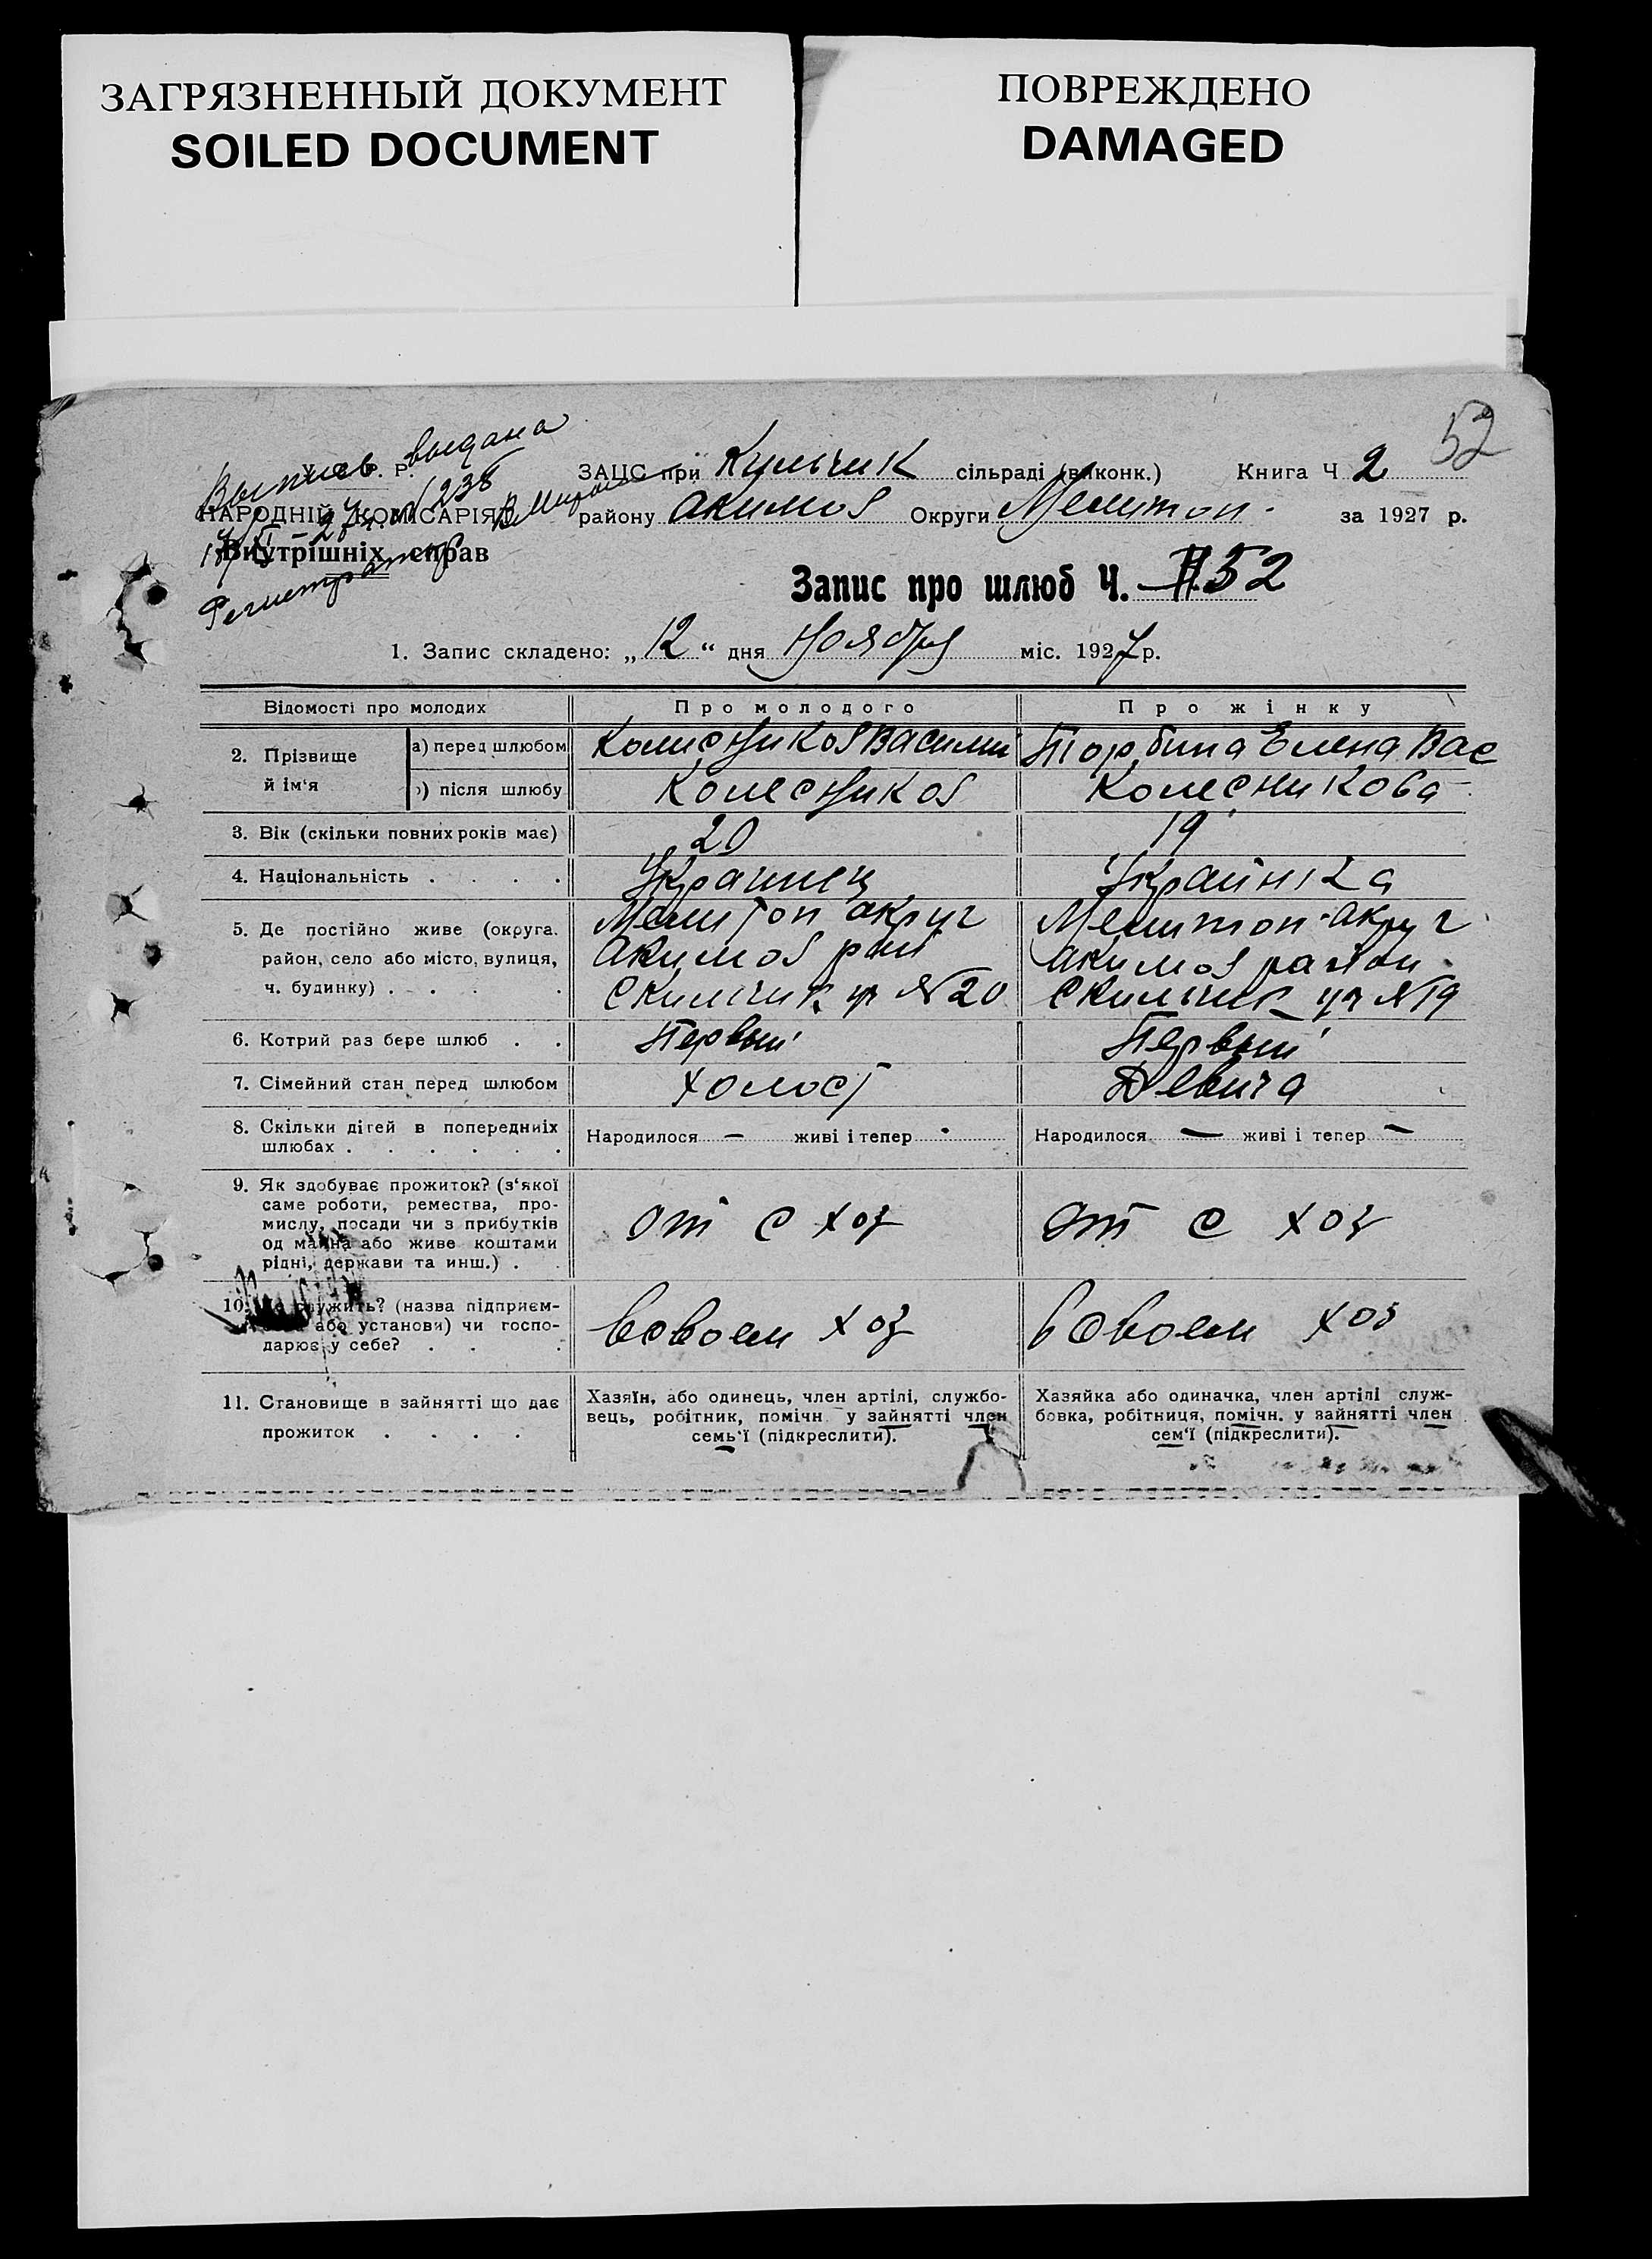 ЗАГРЯЗНЕННЫЙ ДОКУМЕНТ
SOILED DOCUMENT
ПОВРЕЖДЕНО
DAMAGED
52
Выпись выдана
У. С. Р. Р.
НАРОДНІЙ КОМІСАРІЯТ
Внутрішніх справ
Регистратор
ЗАЦС при Кильчик сільраді (виконк.) Книга Ч 2
району Акимов Округи Мелитоп. за 1927 р.
Запис про шлюб Ч. 52
1. Запис складено: „12“ дня Ноября міс. 1927 р.
Відомості про молодих
Про молодого
Про жінку
2. Прізвище й ім‘я
а) перед шлюбом
Колисников Васили
Торбина Елена Вас
) після шлюбу
Колесников
Колесникова
3. Вік (скільки повних років має)
20
19
4. Національність . . . .
Украинец
Україн
5. Де постійно живе (округа.
район, село або місто, вулиця,
ч. будинку) . . . .
Мелитоп акруг
Акимов рай
С Кильчик ул №20
Мелитоп-акруг
Акимов район
С Кильчик ул №19
6. Котрий раз бере шлюб . .
Первый
Первый
7. Сімейний стан перед шлюбом
Холост
Девица
8. Скільки дітей в попередниіх
шлюбах . . . . . .
Народилося — живі і тепер -
Народилося — живі і тепер —
9. Як здобуває прожиток? (з‘якої
саме роботи, ремества, про-
мислу, посади чи з прибутків
од майна або живе коштами
рідні, держави та инш.) .
От с хоз
От с хоз
10. служить? (назва підприєм-
або установи) чи госпо-
дарює у себе? . . .
Всвоем хоз
Всвоем хоз
11. Становище в зайнятті що дає
прожиток . . . .
Хазяїн, або одинець, член артілі, службо-
вець, робітник, помічн. у зайнятті член
семь‘ї (підкреслити).
Хазяйка або одиначка, член артілі служ-
бовка, робітниця, помічн. у зайнятті член
сем‘ї (підкреслити).